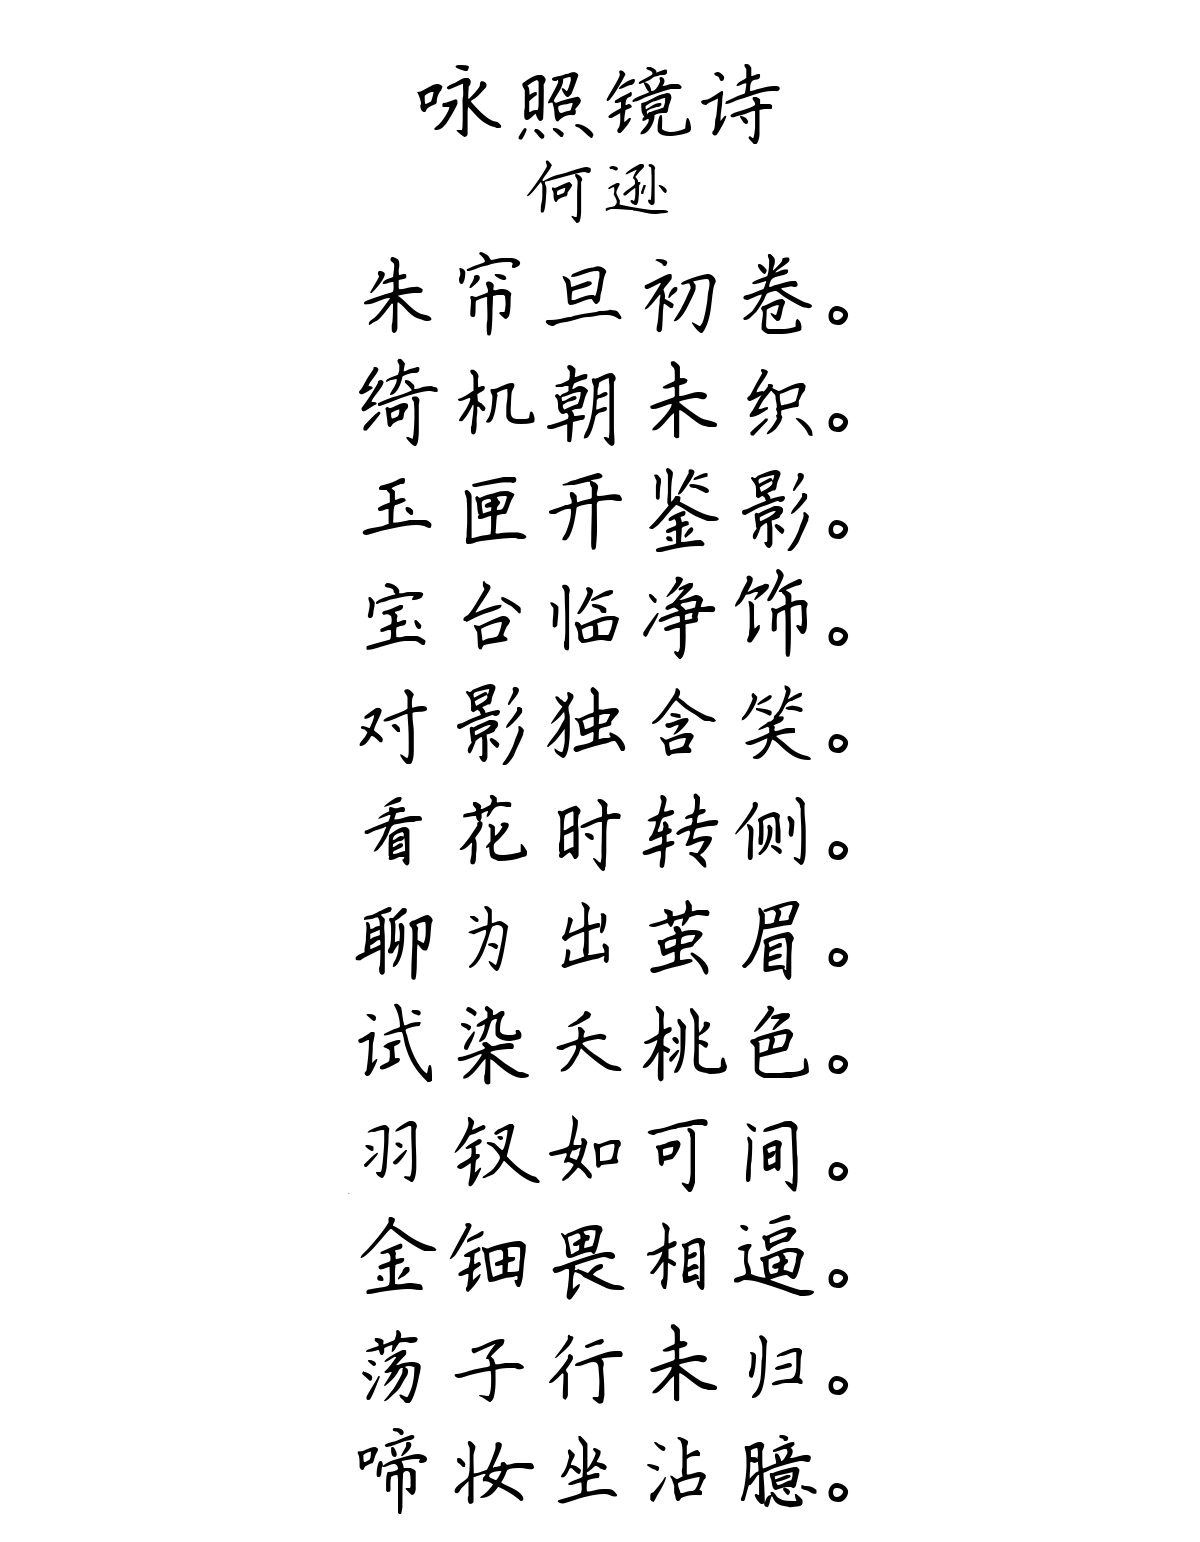 咏照镜诗
何逊
朱帘旦初卷。
绮机朝未织。
玉匣开鉴影。
宝台临净饰。
对影独含笑。
看花时转侧。
聊为出茧眉。
试染夭桃色。
羽钗如可间。
金钿畏相逼。
荡子行未归。
啼妆坐沾臆。